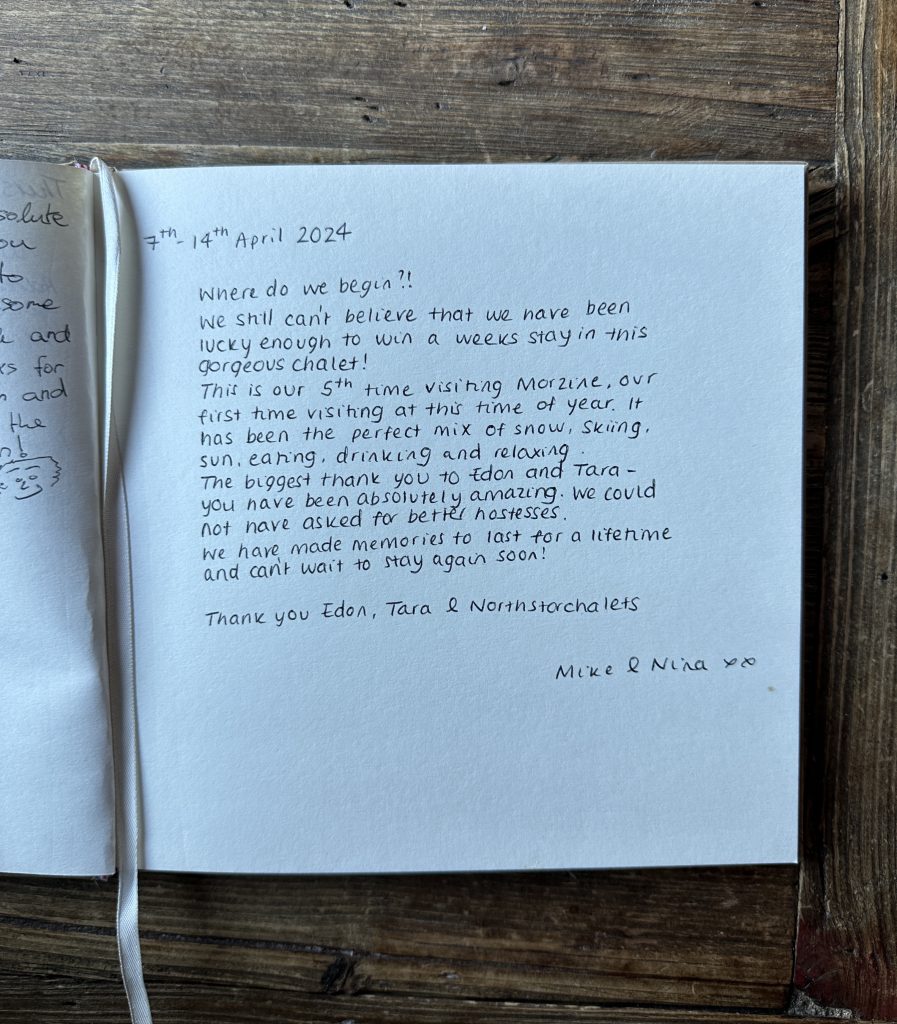 solute
ou
to
some
and
s for
and
the
7th - 14th April 2024
Where do we begin?!
We still can't believe that we have been
lucky enough to win a weeks stay in this
gorgeous chalet!
This is our 5th time visiting Morzine, our
first time visiting at this time of year. It
has been the perfect mix of snow, skiing,
sun, eating, drinking and relaxing.
The biggest thank you to Edon and Tara -
you have been absolutely amazing. We could
not have asked for better hostesses.
We have made memories to last for a lifetime
and can't wait to stay again soon!
Thank you Edon, Tara & Northstarchalets
Mike & Nina xx